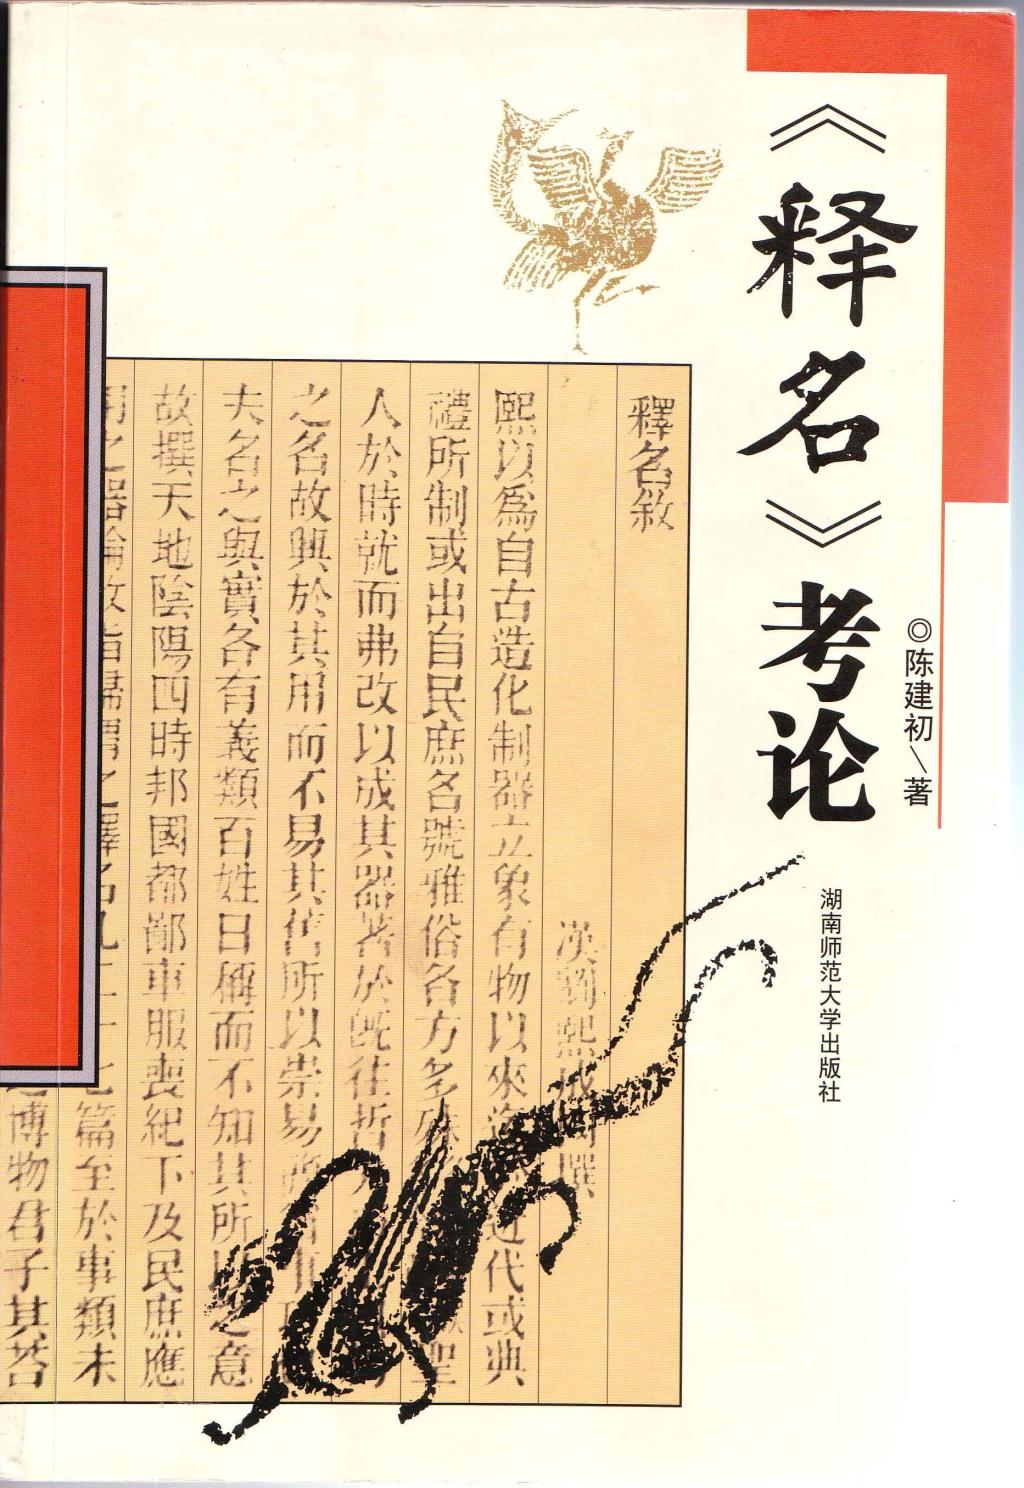 《释名》考论
◎陈建初\著
湖南师范大学出版社
釋名敘
漢劉熙成國撰
熙以爲自古造化制器立象有物以來迄近代或典
禮所制或出自民庶名號雅俗各方多殊聖
人於時就而弗改以成其器著於旣往哲
之名故興於其用而不易其舊所以崇易事
夫名之與實各有義類百姓日稱而不知其所以之意
故撰天地陰陽四時邦國都鄙車服喪紀下及民庶應
用之器論敘指歸謂之釋名凡二十七篇至於事類未
之博物君子其荅